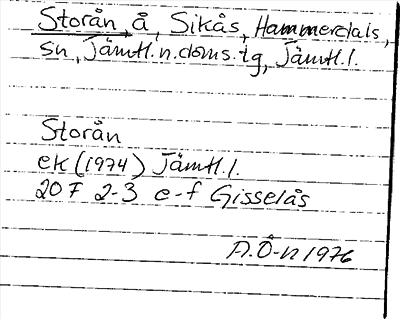 Storån, å, Sikås, Hammerdals,
sn, Jämtl.n.doms.tg, Jämtl.l.
Storån
ek (1974) Jämtl.l.
20 F 2-3 e-f Gisselås
A.Ö-n 1976